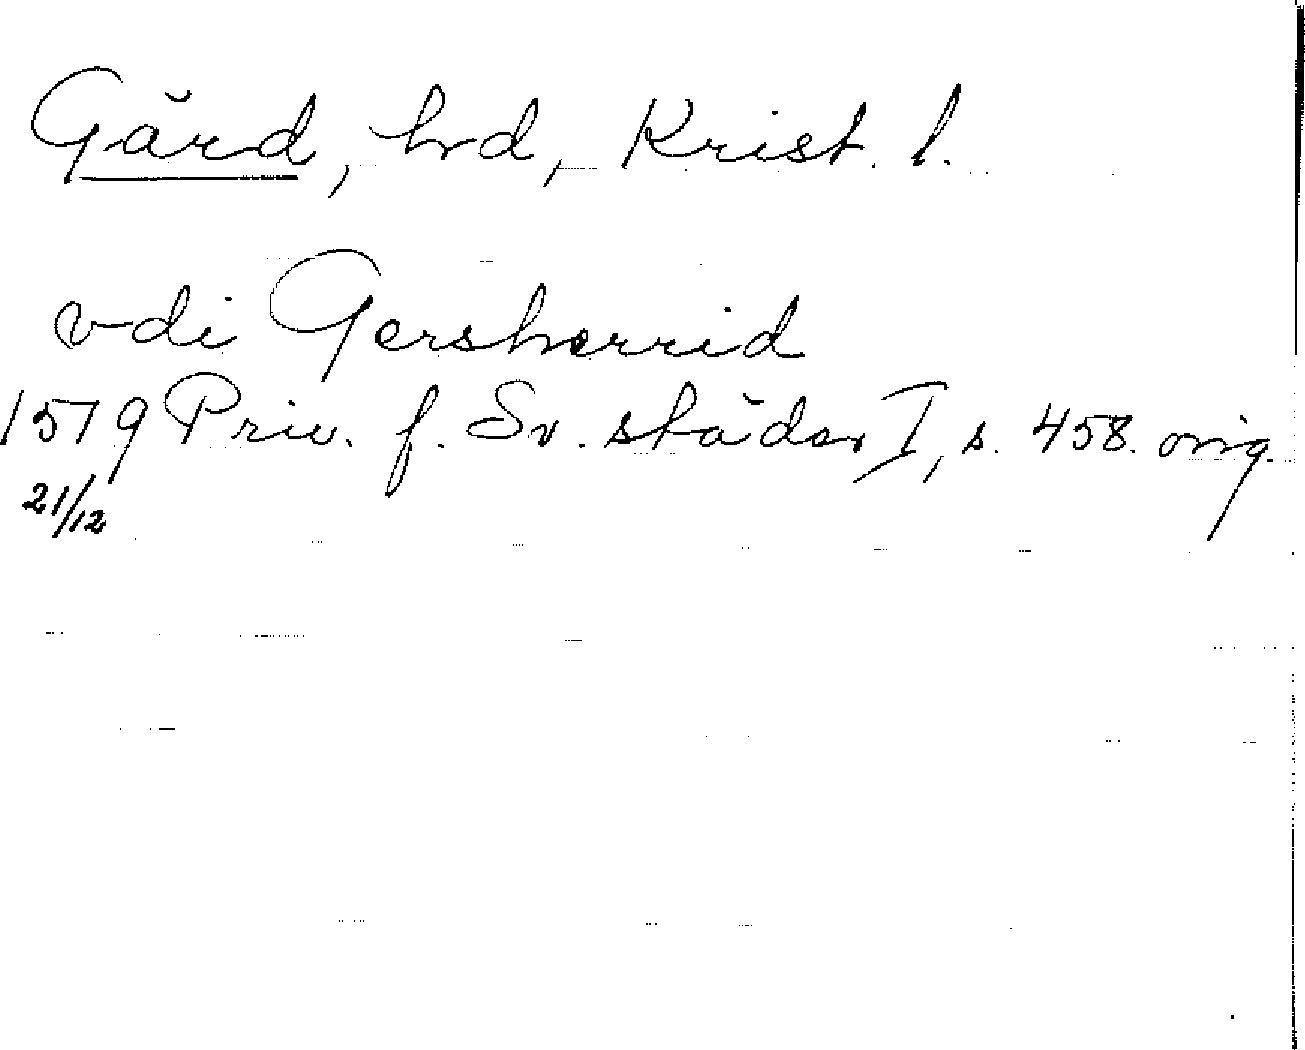 Gärd, hrd, Krist. l.
vdi Gersherrid
1519 Priv. f. Sv. städer I, s. 458. orig.
21/12